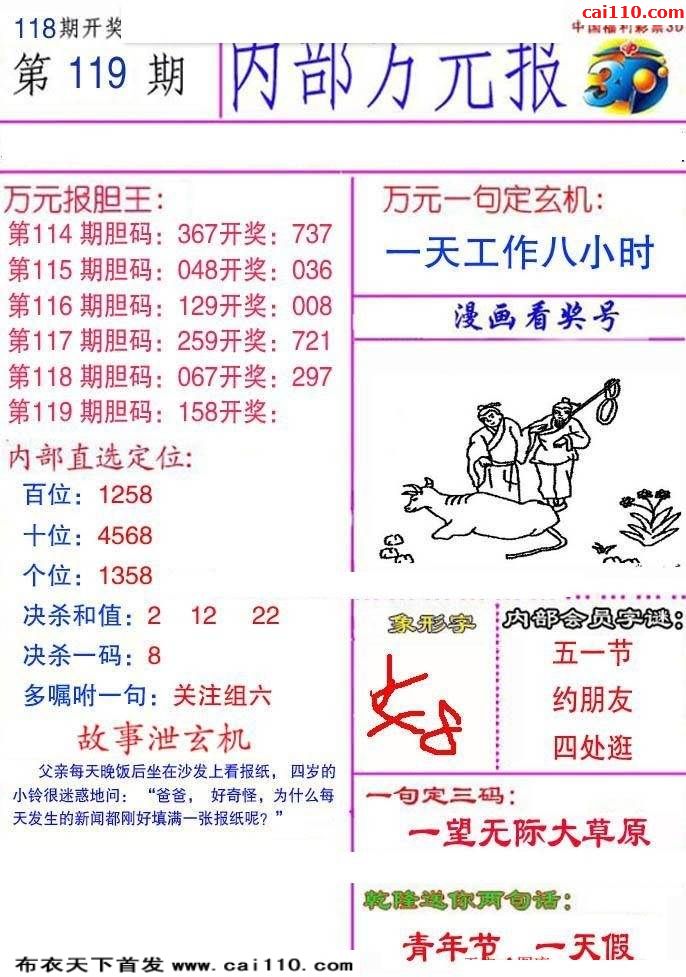 cai110.com
118期开奖
中国福利彩票3D
第 119 期
内部万元报
3D
万元报胆王：
第114 期胆码：367开奖：737
第115 期胆码：048开奖：036
第116 期胆码：129开奖：008
第117 期胆码：259开奖：721
第118 期胆码：067开奖：297
第119 期胆码：158开奖：
内部直选定位：
百位：1258
十位：4568
个位：1358
决杀和值：2 12 22
决杀一码：8
多嘱咐一句：关注组六
故事泄玄机
父亲每天晚饭后坐在沙发上看报纸， 四岁的
小铃很迷惑地问：“爸爸， 好奇怪，为什么每
天发生的新闻都刚好填满一张报纸呢？”
万元一句定玄机：
一天工作八小时
漫画看奖号
象形字
内部会员字谜：
五一节
约朋友
四处逛
一句定三码：
一望无际大草原
乾隆送你两句话：
青年节 一天假
布衣天下首发 www.cai110.com